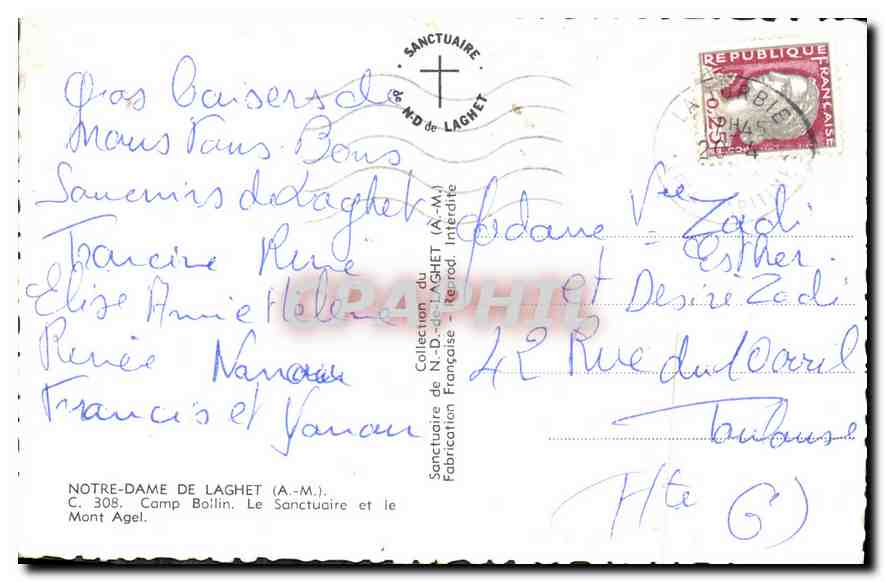 SANCTUAIRE
de N.-D de LAGHET
REPUBLIQUE FRANÇAISE
0,25
LA TURBIE
Gros baisers de
Nous Tous. Bons
Souvenirs de Laghet.
Francine René
Elise Annie Helene
Renée
Francis et
Collection du
Sanctuaire de N.-D.-de-LAGHET (A.-M.)
Fabrication Française - Reprod. Interdite
CPAPHIL
Madame Vve Zadi
Esther.
et Desire Zadi
42 Rue du 10 avril
Toulouse
Hte G)
NOTRE-DAME DE LAGHET (A.-M.).
C. 308. Camp Bollin. Le Sanctuaire et le
Mont Agel.